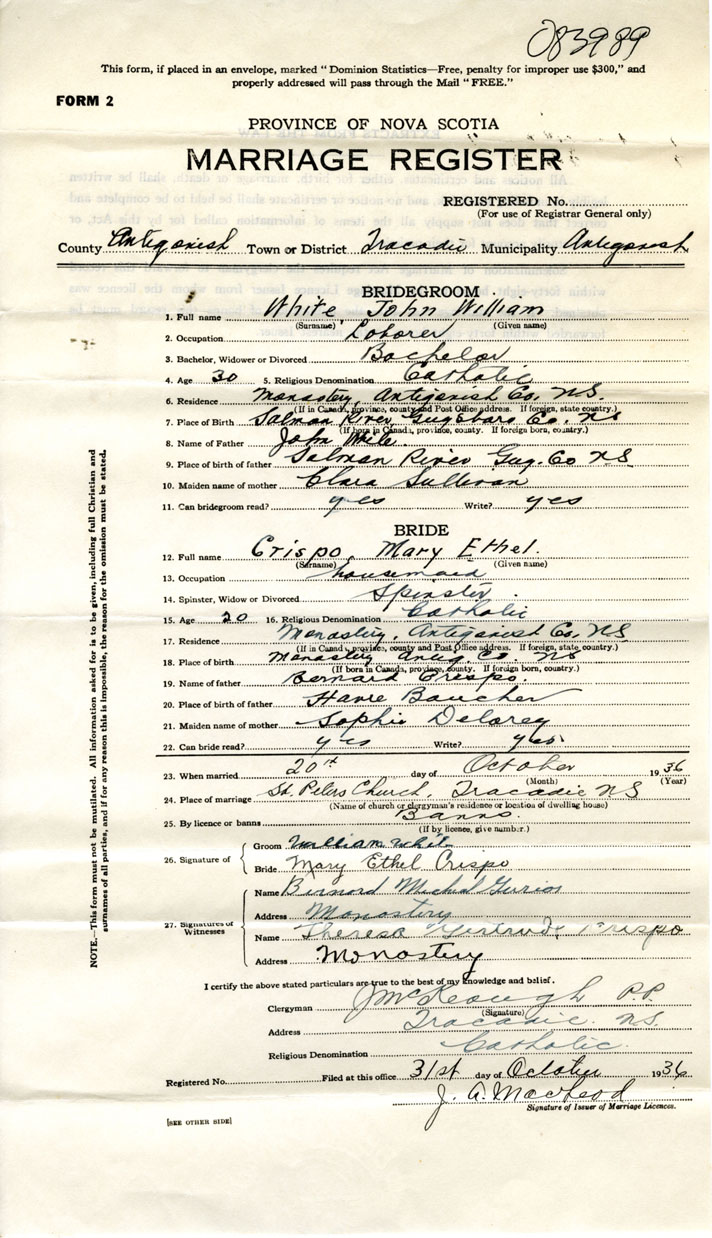 083989
This form, if placed in an envelope, marked "Dominion Statistics—Free, penalty for improper use $300," and
properly addressed will pass through the Mail "FREE."
FORM 2
PROVINCE OF NOVA SCOTIA
MARRIAGE REGISTER
REGISTERED No.
(For use of Registrar General only)
County Antigonish Town or District Tracadie Municipality Antigonish
BRIDEGROOM
1. Full name White, John William
(Surname) (Given name)
2. Occupation Laborer
3. Bachelor, Widower or Divorced Bachelor
4. Age 30 5. Religious Denomination Catholic
6. Residence Monastery, Antigonish Co, N.S.
(If in Canada, province, county and Post Office address. If foreign, state country.)
7. Place of Birth Salmon River Guysboro Co. NS
(If born in Canada, province, county. If foreign born, country.)
8. Name of Father John White
9. Place of birth of father Salmon River Guy. Co NS
10. Maiden name of mother Clara Sullivan
11. Can bridegroom read? yes Write? yes
BRIDE
12. Full name Crispo, Mary Ethel.
(Surname) (Given name)
13. Occupation housemaid
14. Spinster, Widow or Divorced Spinster
15. Age 20 16. Religious Denomination Catholic
17. Residence Monastery, Antigonish Co, NS
(If in Canada, province, county and Post Office address. If foreign, state country.)
18. Place of birth Monastery Antig. Co NS
(If born in Canada, province, county. If foreign born, country.)
19. Name of father Bernard Crispo.
20. Place of birth of father Havre Boucher
21. Maiden name of mother Sophie Delorey
22. Can bride read? yes Write? yes.
23. When married 20th day of October 1936
(Month) (Year)
24. Place of marriage St. Peters Church, Tracadie NS
(Name of church or clergyman's residence or location of dwelling house)
25. By licence or banns Banns.
(If by licence, give number.)
26. Signature of
Groom William White
Bride Mary Ethel Crispo
27. Signatures of Witnesses
Name Bernard Michel
Address Monastery
Name Theresa Gertrude Crispo
Address Monastery
I certify the above stated particulars are true to the best of my knowledge and belief.
Clergyman J McKeough P.P.
(Signature)
Address Tracadie. N.S.
Religious Denomination Catholic.
Registered No. Filed at this office 31st day of October 1936
J. A. MacLeod
Signature of Issuer of Marriage Licences.
[SEE OTHER SIDE]
NOTE.—This form must not be mutilated. All information asked for is to be given, including full Christian and
surnames of all parties, and if for any reason this is impossible, the reason for the omission must be stated.